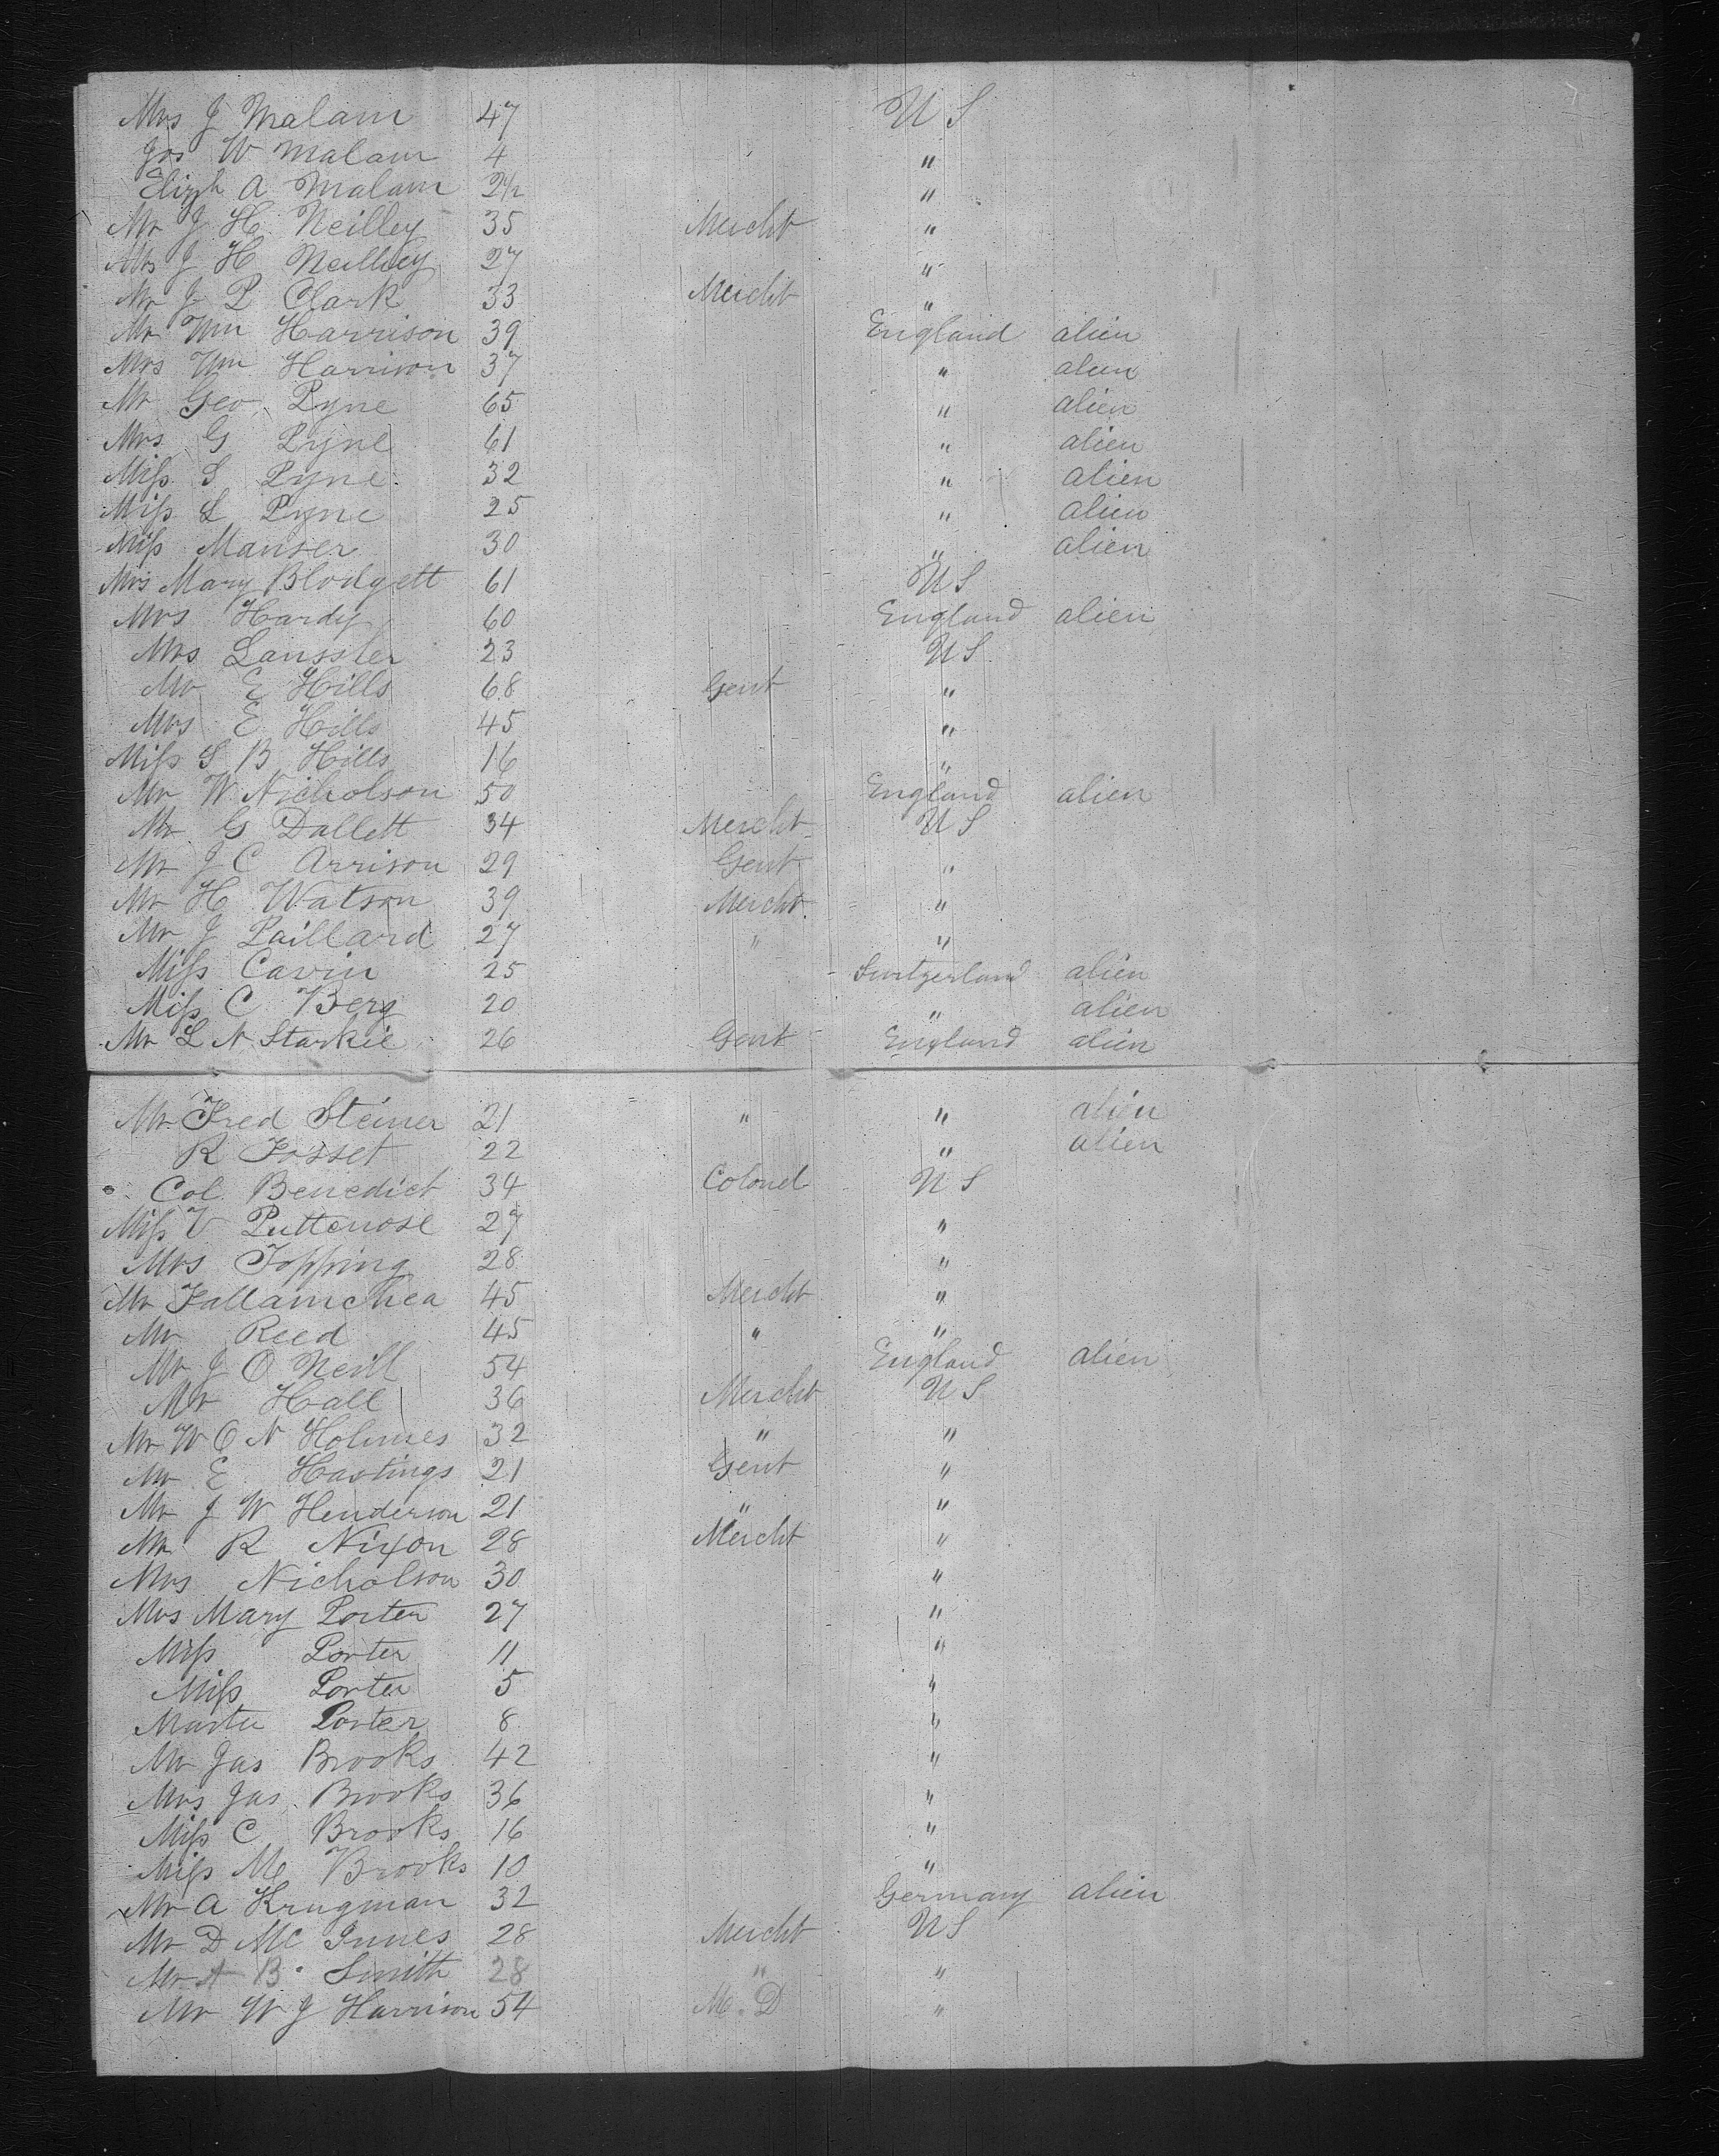 Mrs J Malam 47 U S
Jos W Malam 4 "
Elizh A Malam 2½ "
Mr J H Neilley 35 Mercht "
Mrs J H Neilley 27 "
Mr J P Clark 33 Mercht "
Mr Wm Harrison 39 England alien
Mrs Wm Harrison 37 " alien
Mr Geo Pyne 65 " alien
Mrs G Pyne 61 " alien
Miss S Pyne 32 " alien
Miss L Pyne 25 " alien
Miss Manser 30 " alien
Mrs Mary Blodgett 61 U S
Mrs Hardy 60 England alien
Mrs Lanssler 23 U S
Mr E Hills 68 Gent "
Mrs E Hills 45 "
Miss S B Hills 16 "
Mr W Nicholson 50 England alien
Mr G Dallett 34 Mercht U S
Mr J C Arrison 29 Gent "
Mr H Watson 39 Mercht "
Mr J Paillard 27 " "
Miss Cavin 25 Switzerland alien
Miss C Berg 20 " alien
Mr L N Starkie 26 Gent England alien
Mr Fred Steiner 21 " " alien
R Fosset 22 " alien
Col. Benedict 34 Colonel U S
Miss V Puttenose 27 "
Mrs Topping 28 "
Mr Fallamchea 45 Mercht "
Mr Reed 45 " "
Mr J O Neill 54 England alien
Mr Hall 36 Mercht U S
Mr W O N Holmes 32 " "
Mr E Hastings 21 Gent "
Mr J W Henderson 21 " "
Mr R Nixon 28 Mercht "
Mrs Nicholson 30 "
Mrs Mary Porter 27 "
Miss Porter 11 "
Miss Porter 5 "
Master Porter 8 "
Mr Jas Brooks 42 "
Mrs Jas Brooks 36 "
Miss C Brooks 16 "
Miss M Brooks 10 "
Mr A Krugman 32 Germany alien
Mr D Mc Innes 28 Mercht U S
Mr A B Smith 28 " "
Mr W J Harrison 54 M. D "